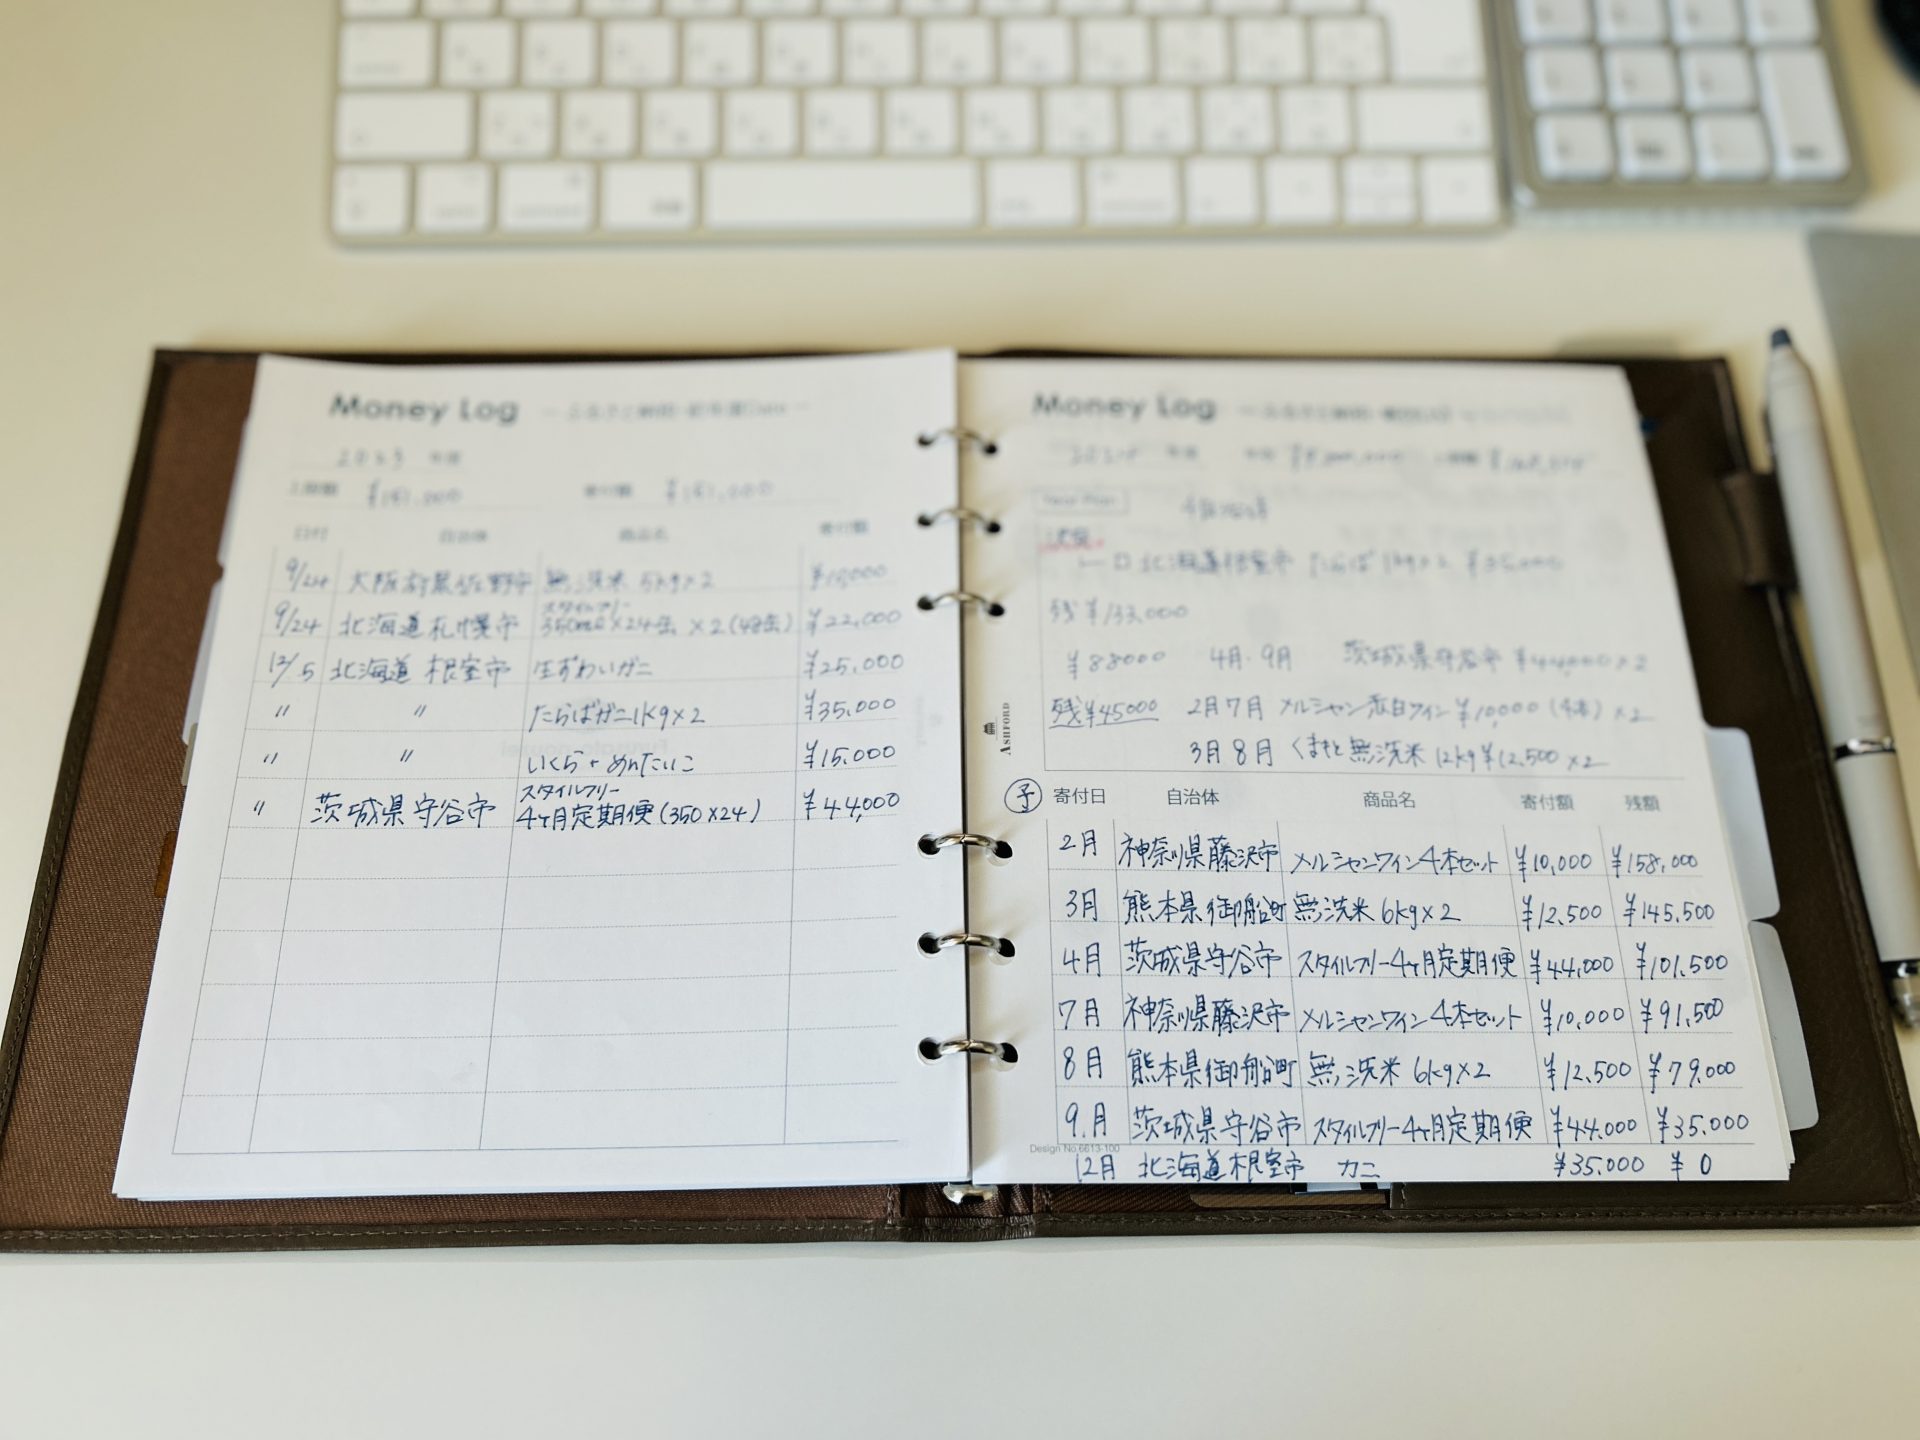 Money Log
2023 年度
¥151,000 寄付額 ¥151,000
日付 自治体 商品名 寄付額
9/24 大阪府泉佐野市 無洗米 5kg×2 ¥10,000
スタイルフリー
9/24 北海道札幌市 350ml×24缶 ×2(48缶) ¥22,000
12/5 北海道 根室市 生ずわいガニ ¥25,000
〃 〃 たらばガニ1kg×2 ¥35,000
〃 〃 いくら+めんたいこ ¥15,000
スタイルフリー
〃 茨城県守谷市 4ヶ月定期便(350×24) ¥44,000
Money Log
年度
Year Plan
北海道根室市 たらば 1kg×2 ¥35,000
残 ¥133,000
¥88000 4月・9月 茨城県守谷市 ¥44,000×2
残¥45000 2月7月 メルシャン赤白ワイン ¥10,000 (4本) ×2
3月 8月 くまもと無洗米 12kg ¥12,500 ×2
ASHFORD
予 寄付日 自治体 商品名 寄付額 残額
2月 神奈川県藤沢市 メルシャンワイン4本セット ¥10,000 ¥158,000
3月 熊本県御船町 無洗米 6kg×2 ¥12,500 ¥145,500
4月 茨城県守谷市 スタイルフリー4ヶ月定期便 ¥44,000 ¥101,500
7月 神奈川県藤沢市 メルシャンワイン4本セット ¥10,000 ¥91,500
8月 熊本県御船町 無洗米 6kg×2 ¥12,500 ¥79,000
9月 茨城県守谷市 スタイルフリー4ヶ月定期便 ¥44,000 ¥35,000
Design No.6613-100
12月 北海道根室市 カニ ¥35,000 ¥0